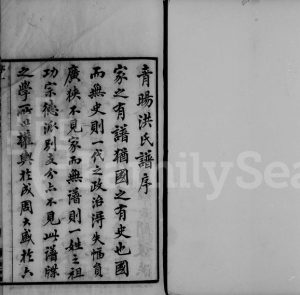 青暘洪氏譜序
家之有譜猶國之有史也國
而無史則一代之政治得失幅員
廣狹不見家而無譜則一姓之祖
功宗德派別支分亦不見此譜牒
之學所以權輿於成周大盛於六
FamilySea